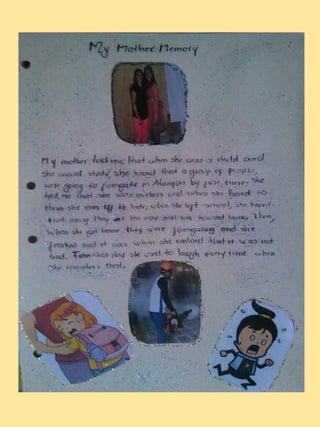 My Mother Memory
My mother told me that when she was a child and
she would study, she heard that a group of people
were going to fumigate in Managua by first time. She
told me that she was in class and when she heard to
them she ran off to hide, when she left school, she heard
that away they the way and ran toward home. Then,
when she got home they were fumigating and she
and it was when she realized that it was not
bad. From that day she used to laugh every time when
she remembers that.